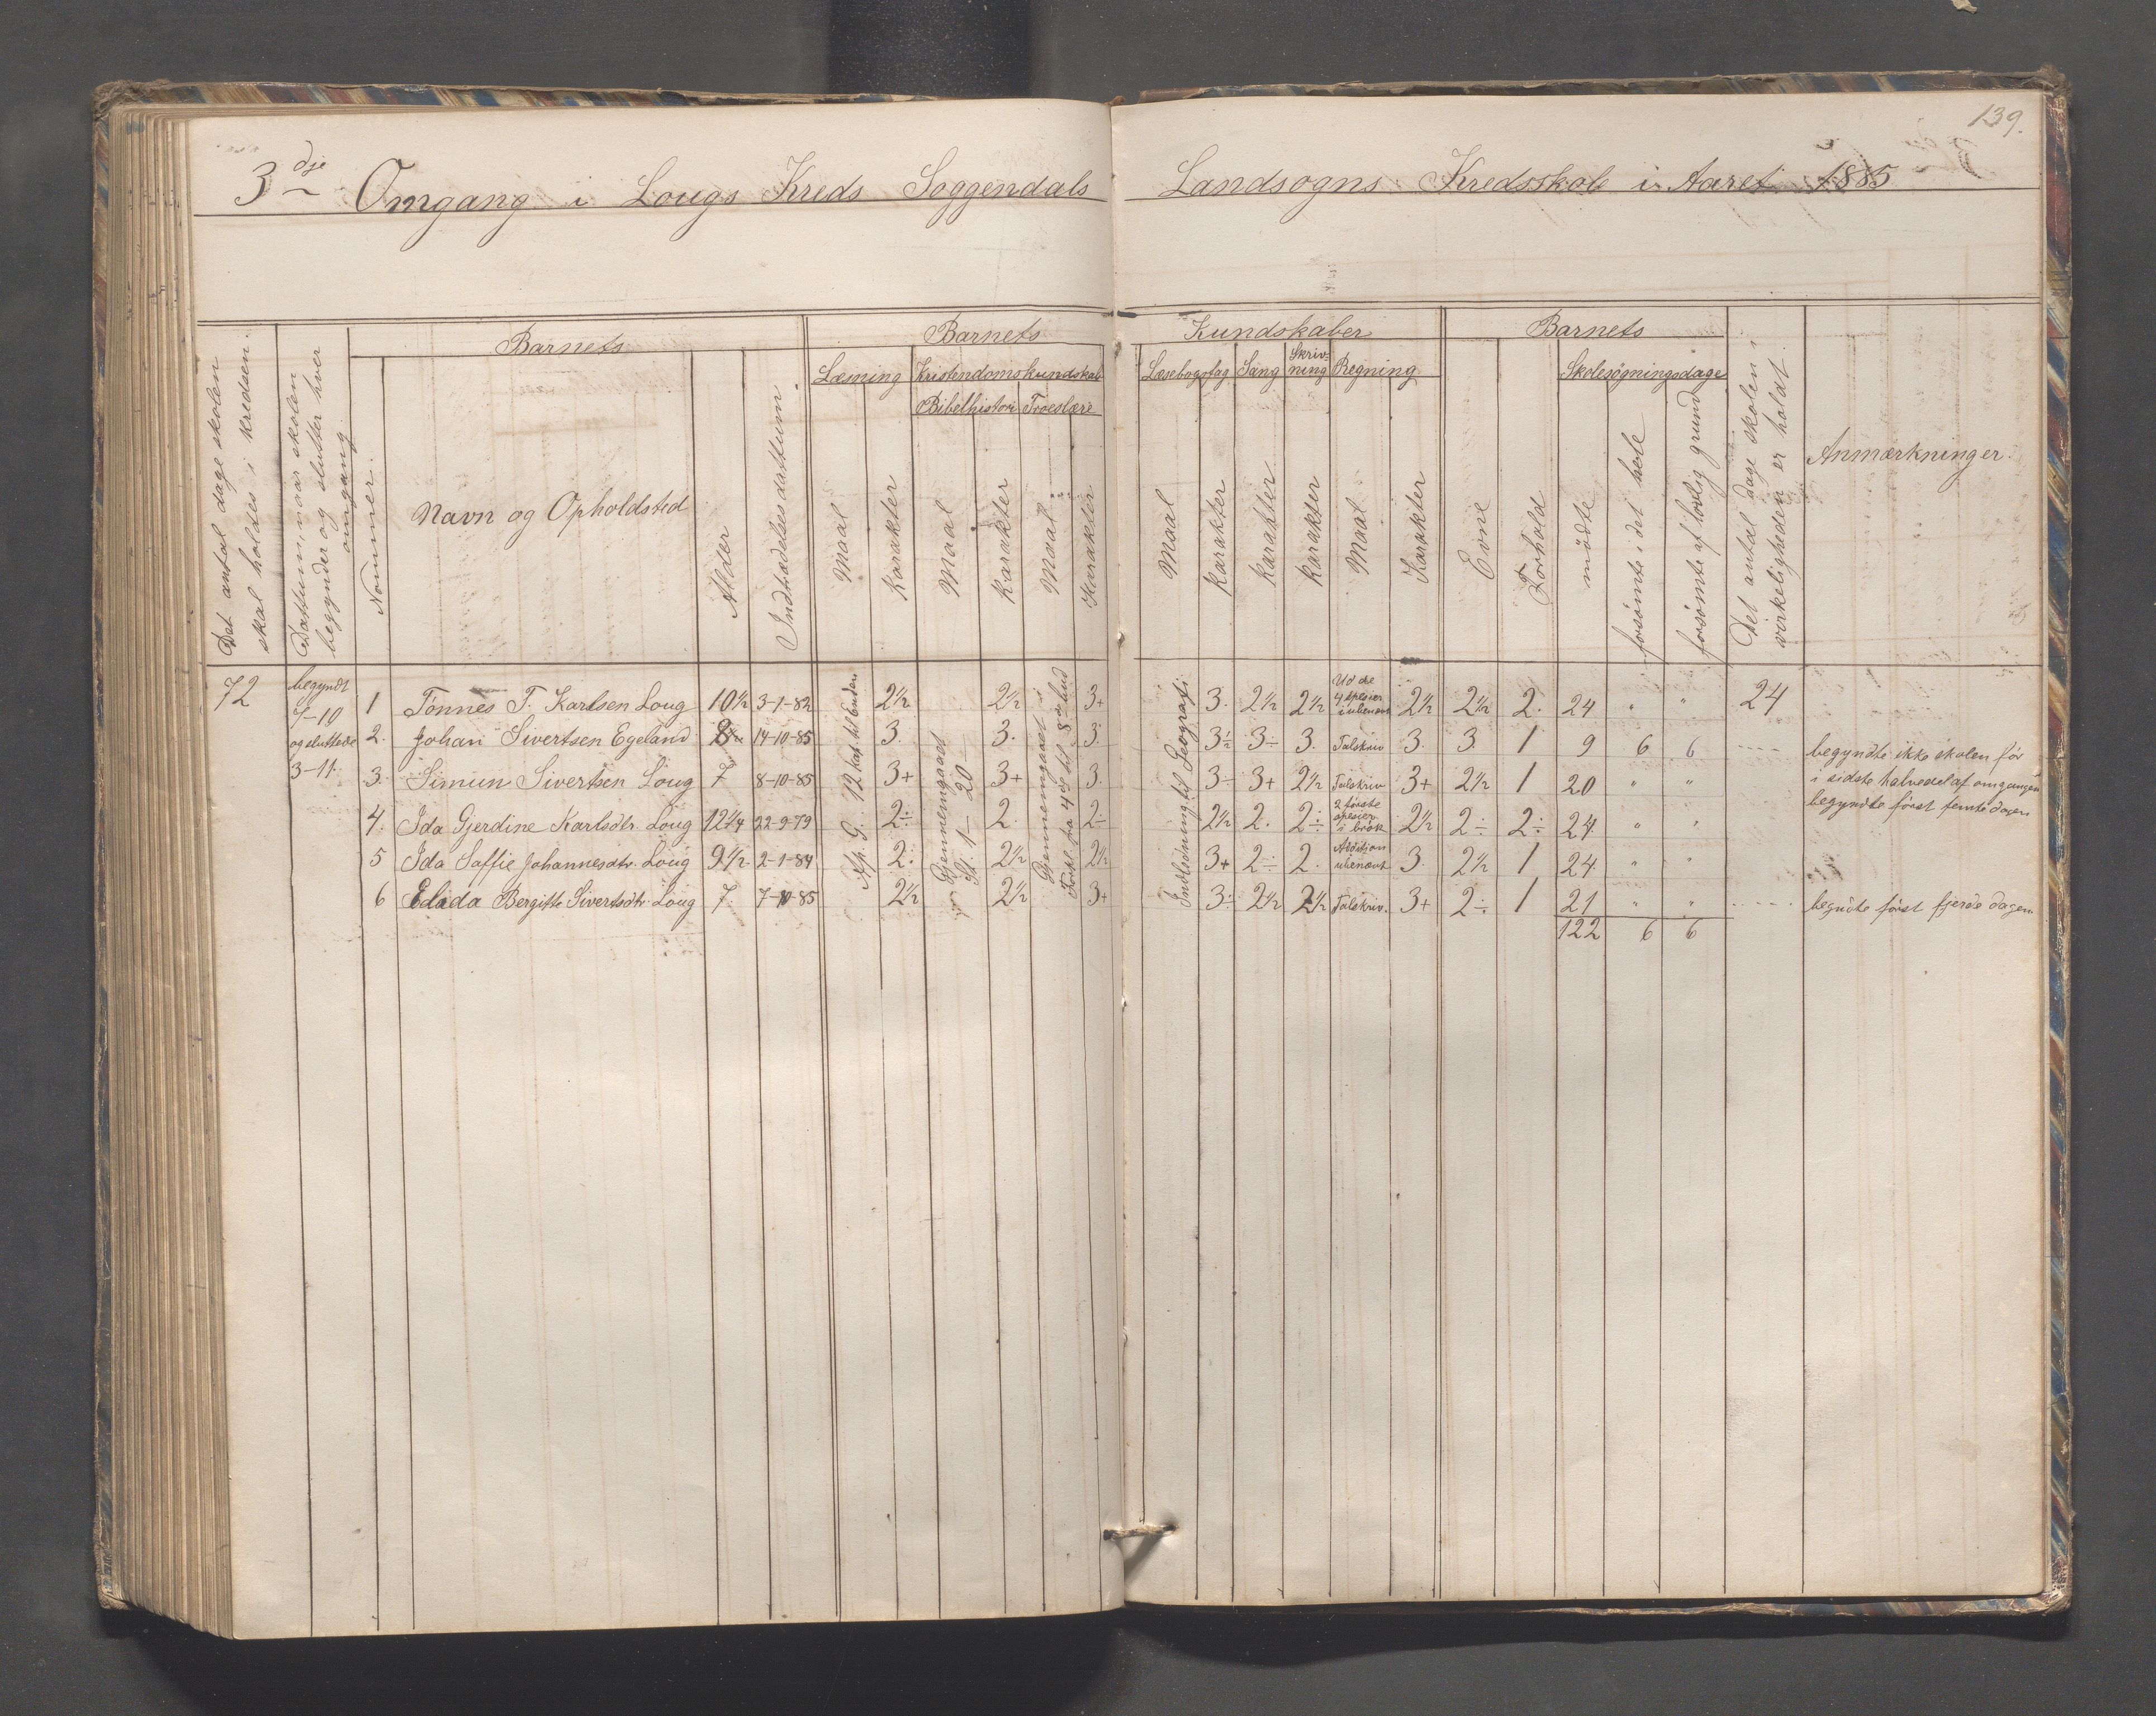 139.
3dje Omgang i Lougs Kreds Soggendals Landsogns Kredsskole i Aaret 1885
Det antal dage skolen skal holdes i kredsen.
Dattum, naar skolen begynder og slutter hver omgang
Barnets
Nommer.
Navn og Opholdsted
Alder
Indtrædelses dattum.
Barnets Kundskaber
Læsning
Maal
Karakter
Kristendomskundskab
Bibelhistori
Maal
Karakter
Troeslære
Maal
Karakter
Læsebogsfag
Maal
Karakter
Sang
Karakter
Skrivning
Karakter
Regning
Maal
Karakter
Barnets
Evne
Forhold
Skolesøgningsdage
mødte
forsømte i det hele
forsømte af lovlig grund
Det antal dage skolen i virkeligheden er holdt.
Anmærkninger.
72
begyndt
7-10
og sluttede
3-11.
Ap. G. 12 kap. til enden
Gjennemgaaet St. 1 – 20
Gjennemgaaet i Forkl. fra 4de til 8de bud
Indledning til Geografi
1 Tønnes T. Karlsen Loug 10 1/2 3-1-82 2 1/2 2 1/2 3+ 3. 2 1/2 2 1/2 Ud de 4 spesier i ubenævt 2 1/2 2 1/2 2. 24 " " 24
2. Johan Sivertsen Egeland 8 14-10-85 3. 3. 3. 3÷ 3÷ 3. Talskriv 3. 3. 1 9 6 6 begyndte ikke skolen før i sidste halvedel af omgangen
3. Simun Sivertsen Loug 7 8-10-85 3+ 3+ 3. 3÷ 3+ 2 1/2 Talskriv 3+ 2 1/2 1 20 " " begyndte først femte dagen
4. Ida Gjerdine Karlsdtr. Loug 12 1/4 22-9-79 2÷ 2. 2÷ 2 1/2 2. 2÷ 2 første spesier i brøk 2 1/2 2÷ 2÷ 24 " "
5 Ida Saffie Johannesdtr. Loug 9 1/2 2-1-84 2. 2 1/2 2 1/2 3+ 2÷ 2. Addition ubenævt 3. 2 1/2 1 24 " "
6 Elada Bergitte Sivertsdtr. Loug 7. 7-10-85 2 1/2 2 1/2 3+ 3÷ 2 1/2 2 1/2 Talskriv. 3+ 2÷ 1 21 " " begndte først fjerde dagen
122 6 6